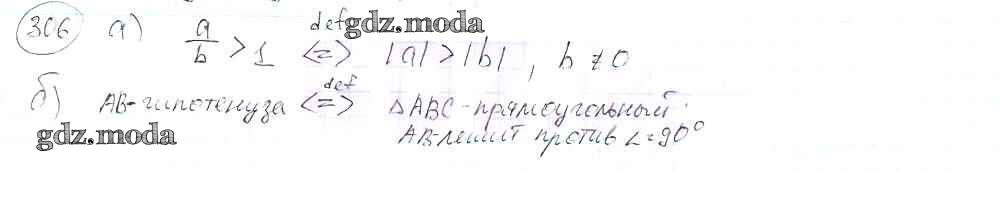 306 а) a/b > 1 <=> def |a| > |b|, b ≠ 0
gdz.moda
б) AB-гипотенуза <=> def △ABC-прямоугольный
AB-лежит против ∠=90°
gdz.moda